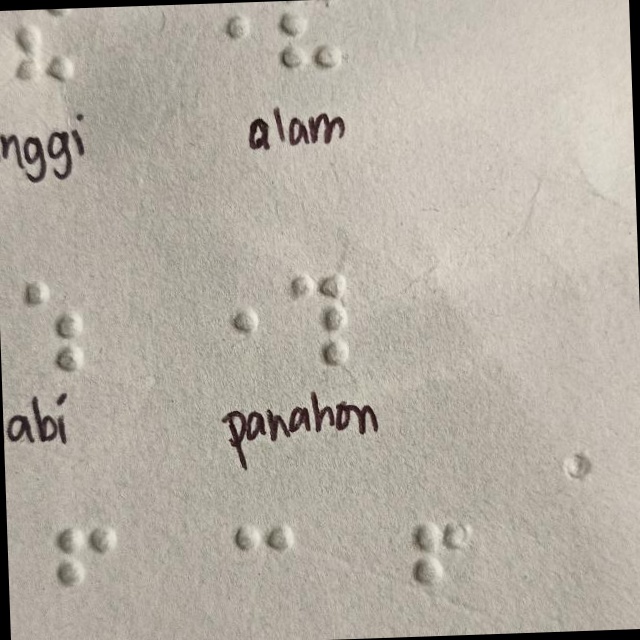 nggi alam
abi panahon